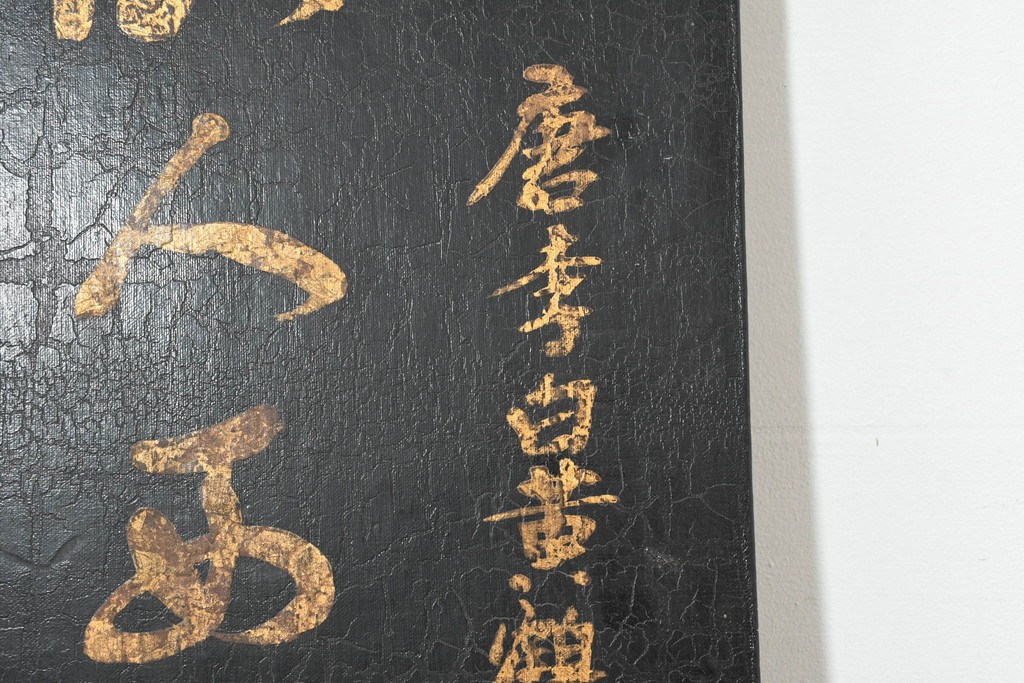 唐李白黄鹤
人西